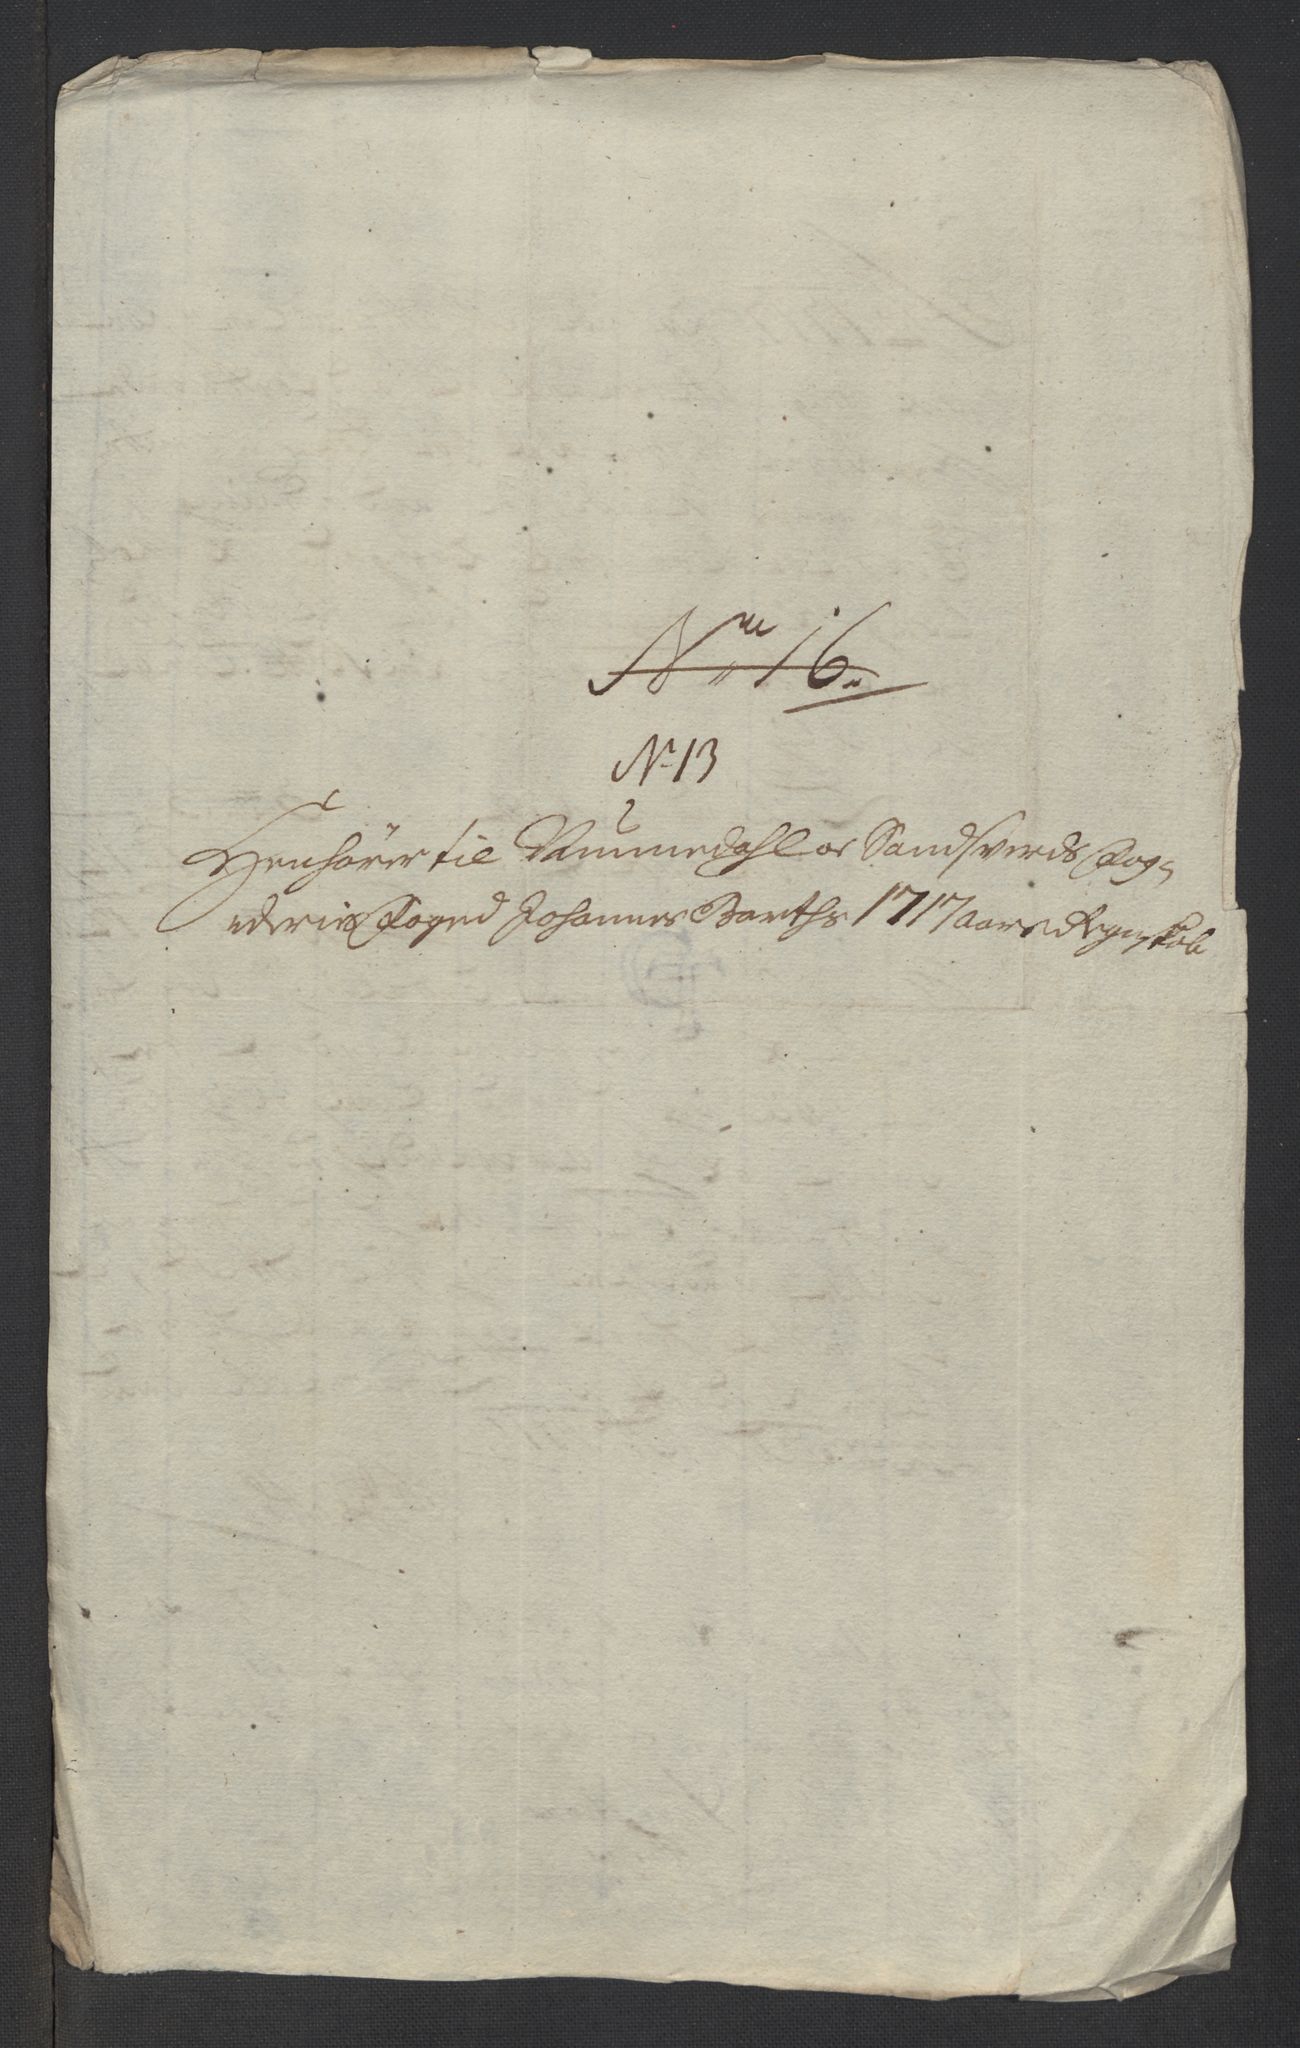 No 16.
No 13
Henhörer til Nummedahl oc Sandsverds Fog-
deries Foged Johannes Barths 1717 Aars Regenskab